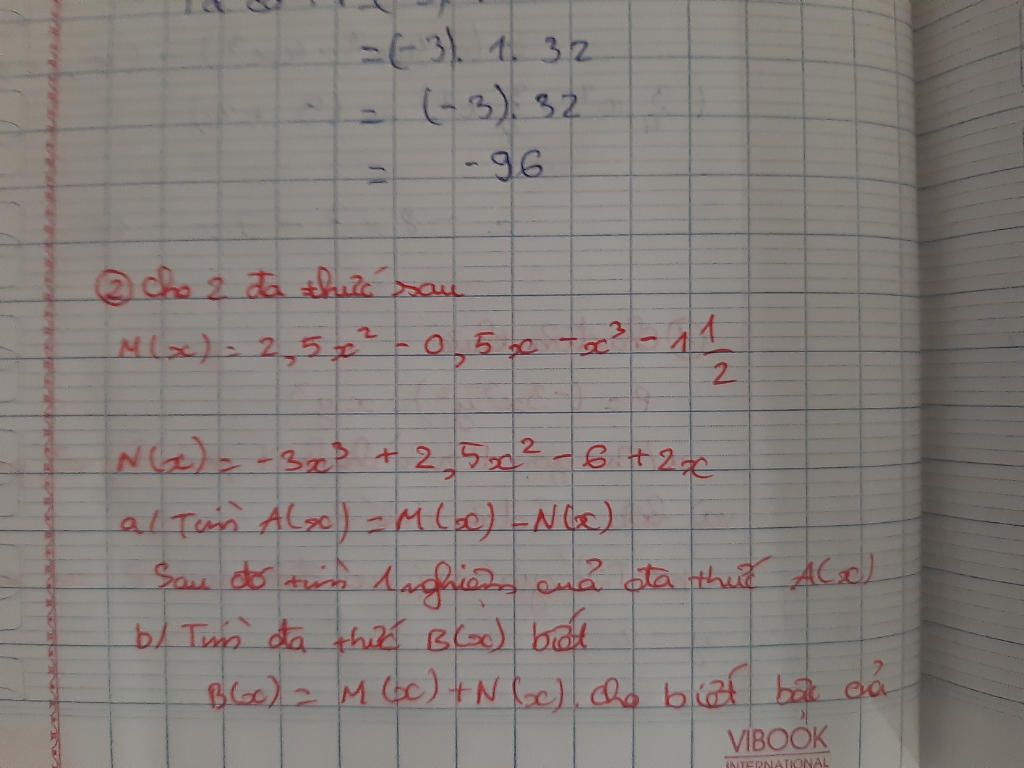 = (-3). 1. 32
= (-3). 32
= -96
② Cho 2 đa thức sau
M(x) = 2,5x² - 0,5x - x³ - 1 1/2
N(x) = -3x³ + 2,5x² - 6 + 2x
a/ Tìm A(x) = M(x) - N(x)
Sau đó tìm 1 nghiệm của đa thức A(x)
b/ Tìm đa thức B(x) biết
B(x) = M(x) + N(x). Cho biết bậc của
VIBOOK
INTERNATIONAL